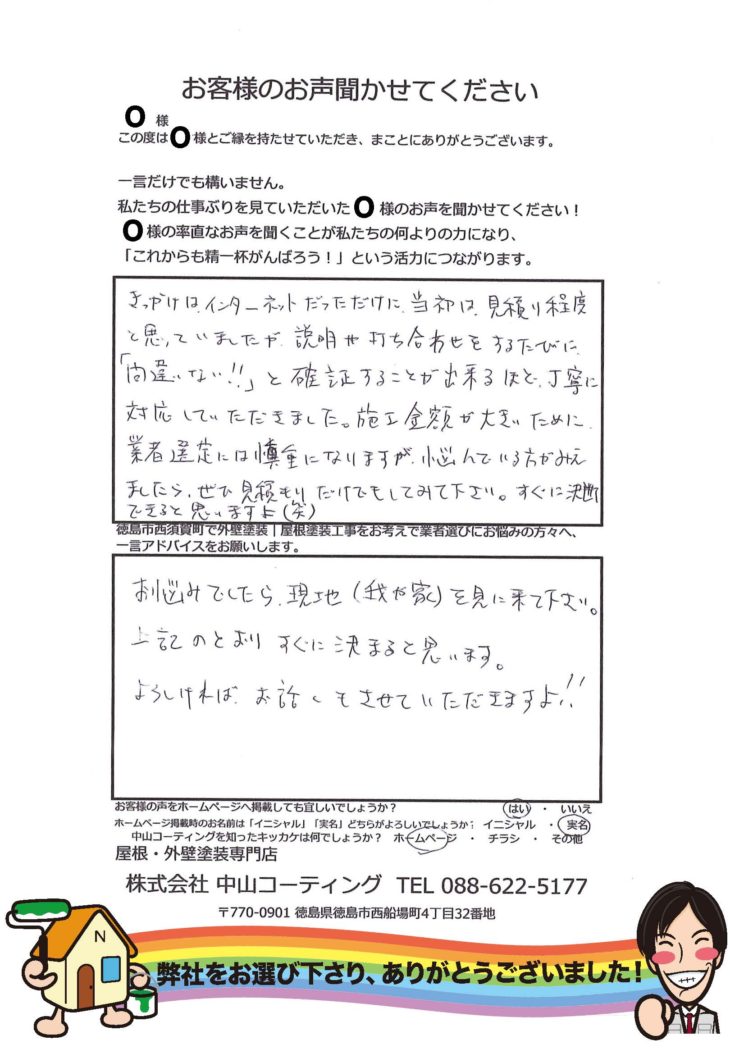 お客様のお声聞かせてください
O 様
この度は O 様とご縁を持たせていただき、まことにありがとうございます。
一言だけでも構いません。
私たちの仕事ぶりを見ていただいた O 様のお声を聞かせてください！
O 様の率直なお声を聞くことが私たちの何よりの力になり、
「これからも精一杯がんばろう！」という活力につながります。
きっかけは、インターネットだっただけに、当初は、見積り程度
と思っていましたが、説明や打ち合わせをするたびに、
「間違いない!!」と確証することが出来るほど、丁寧に
対応していただきました。施工金額が大きいために、
業者選定には慎重になりますが、悩んでいる方がみえ
ましたら、ぜひ見積もりだけでもしてみて下さい。すぐに決断
できると思いますよ(笑)
徳島市西須賀町で外壁塗装｜屋根塗装工事をお考えで業者選びにお悩みの方々へ、
一言アドバイスをお願いします。
お悩みでしたら、現地(我が家)を見に来て下さい。
上記のとおりすぐに決まると思います。
よろしければ、お話しもさせていただきますよ!!
お客様の声をホームページへ掲載しても宜しいでしょうか？ はい ・ いいえ
ホームページ掲載時のお名前は「イニシャル」「実名」どちらがよろしいでしょうか？ イニシャル ・ 実名
中山コーティングを知ったキッカケは何でしょうか？ ホームページ ・ チラシ ・ その他
屋根・外壁塗装専門店
株式会社 中山コーティング TEL 088-622-5177
〒770-0901 徳島県徳島市西船場町4丁目32番地
N
弊社をお選び下さり、ありがとうございました！